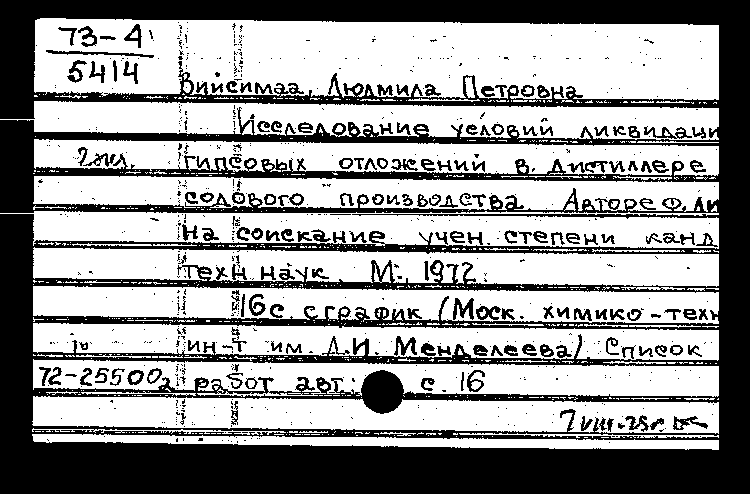 73-4
5414
Вийсимаа, Людмила Петровна
Исследование условий ликвидаци
2 экз. гипсовых отложений в дистиллере
содового производства. Автореф. ди
на соискание учен. степени канд
техн. наук. М., 1972.
16 с. с график. (Моск. химико-техн
ин-т им. Д.И. Менделеева). Список
72-25500 работ авт.: с. 16